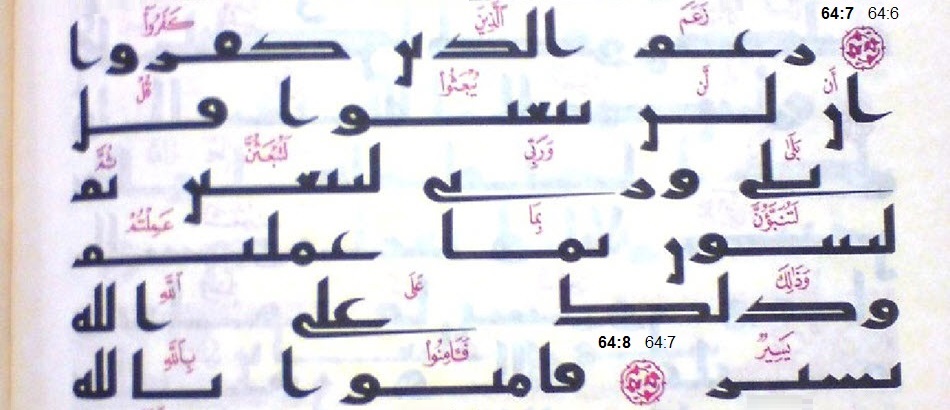 64:7 64:6
زَعَمَ ٱلَّذِينَ كَفَرُوٓا۟
زعم الذين كفروا
أَن لَّن يُبْعَثُوا۟ قُلْ
ان لن يبعثوا قل
بَلَىٰ وَرَبِّى لَتُبْعَثُنَّ ثُمَّ
بلى وربى لتبعثن ثم
لَتُنَبَّؤُنَّ بِمَا عَمِلْتُمْ
لتنبون بما عملتم
وَذَٰلِكَ عَلَى ٱللَّهِ
وذلك على الله
64:8 64:7
يَسِيرٌ فَـَٔامِنُوا۟ بِٱللَّهِ
يسير فامنوا بالله